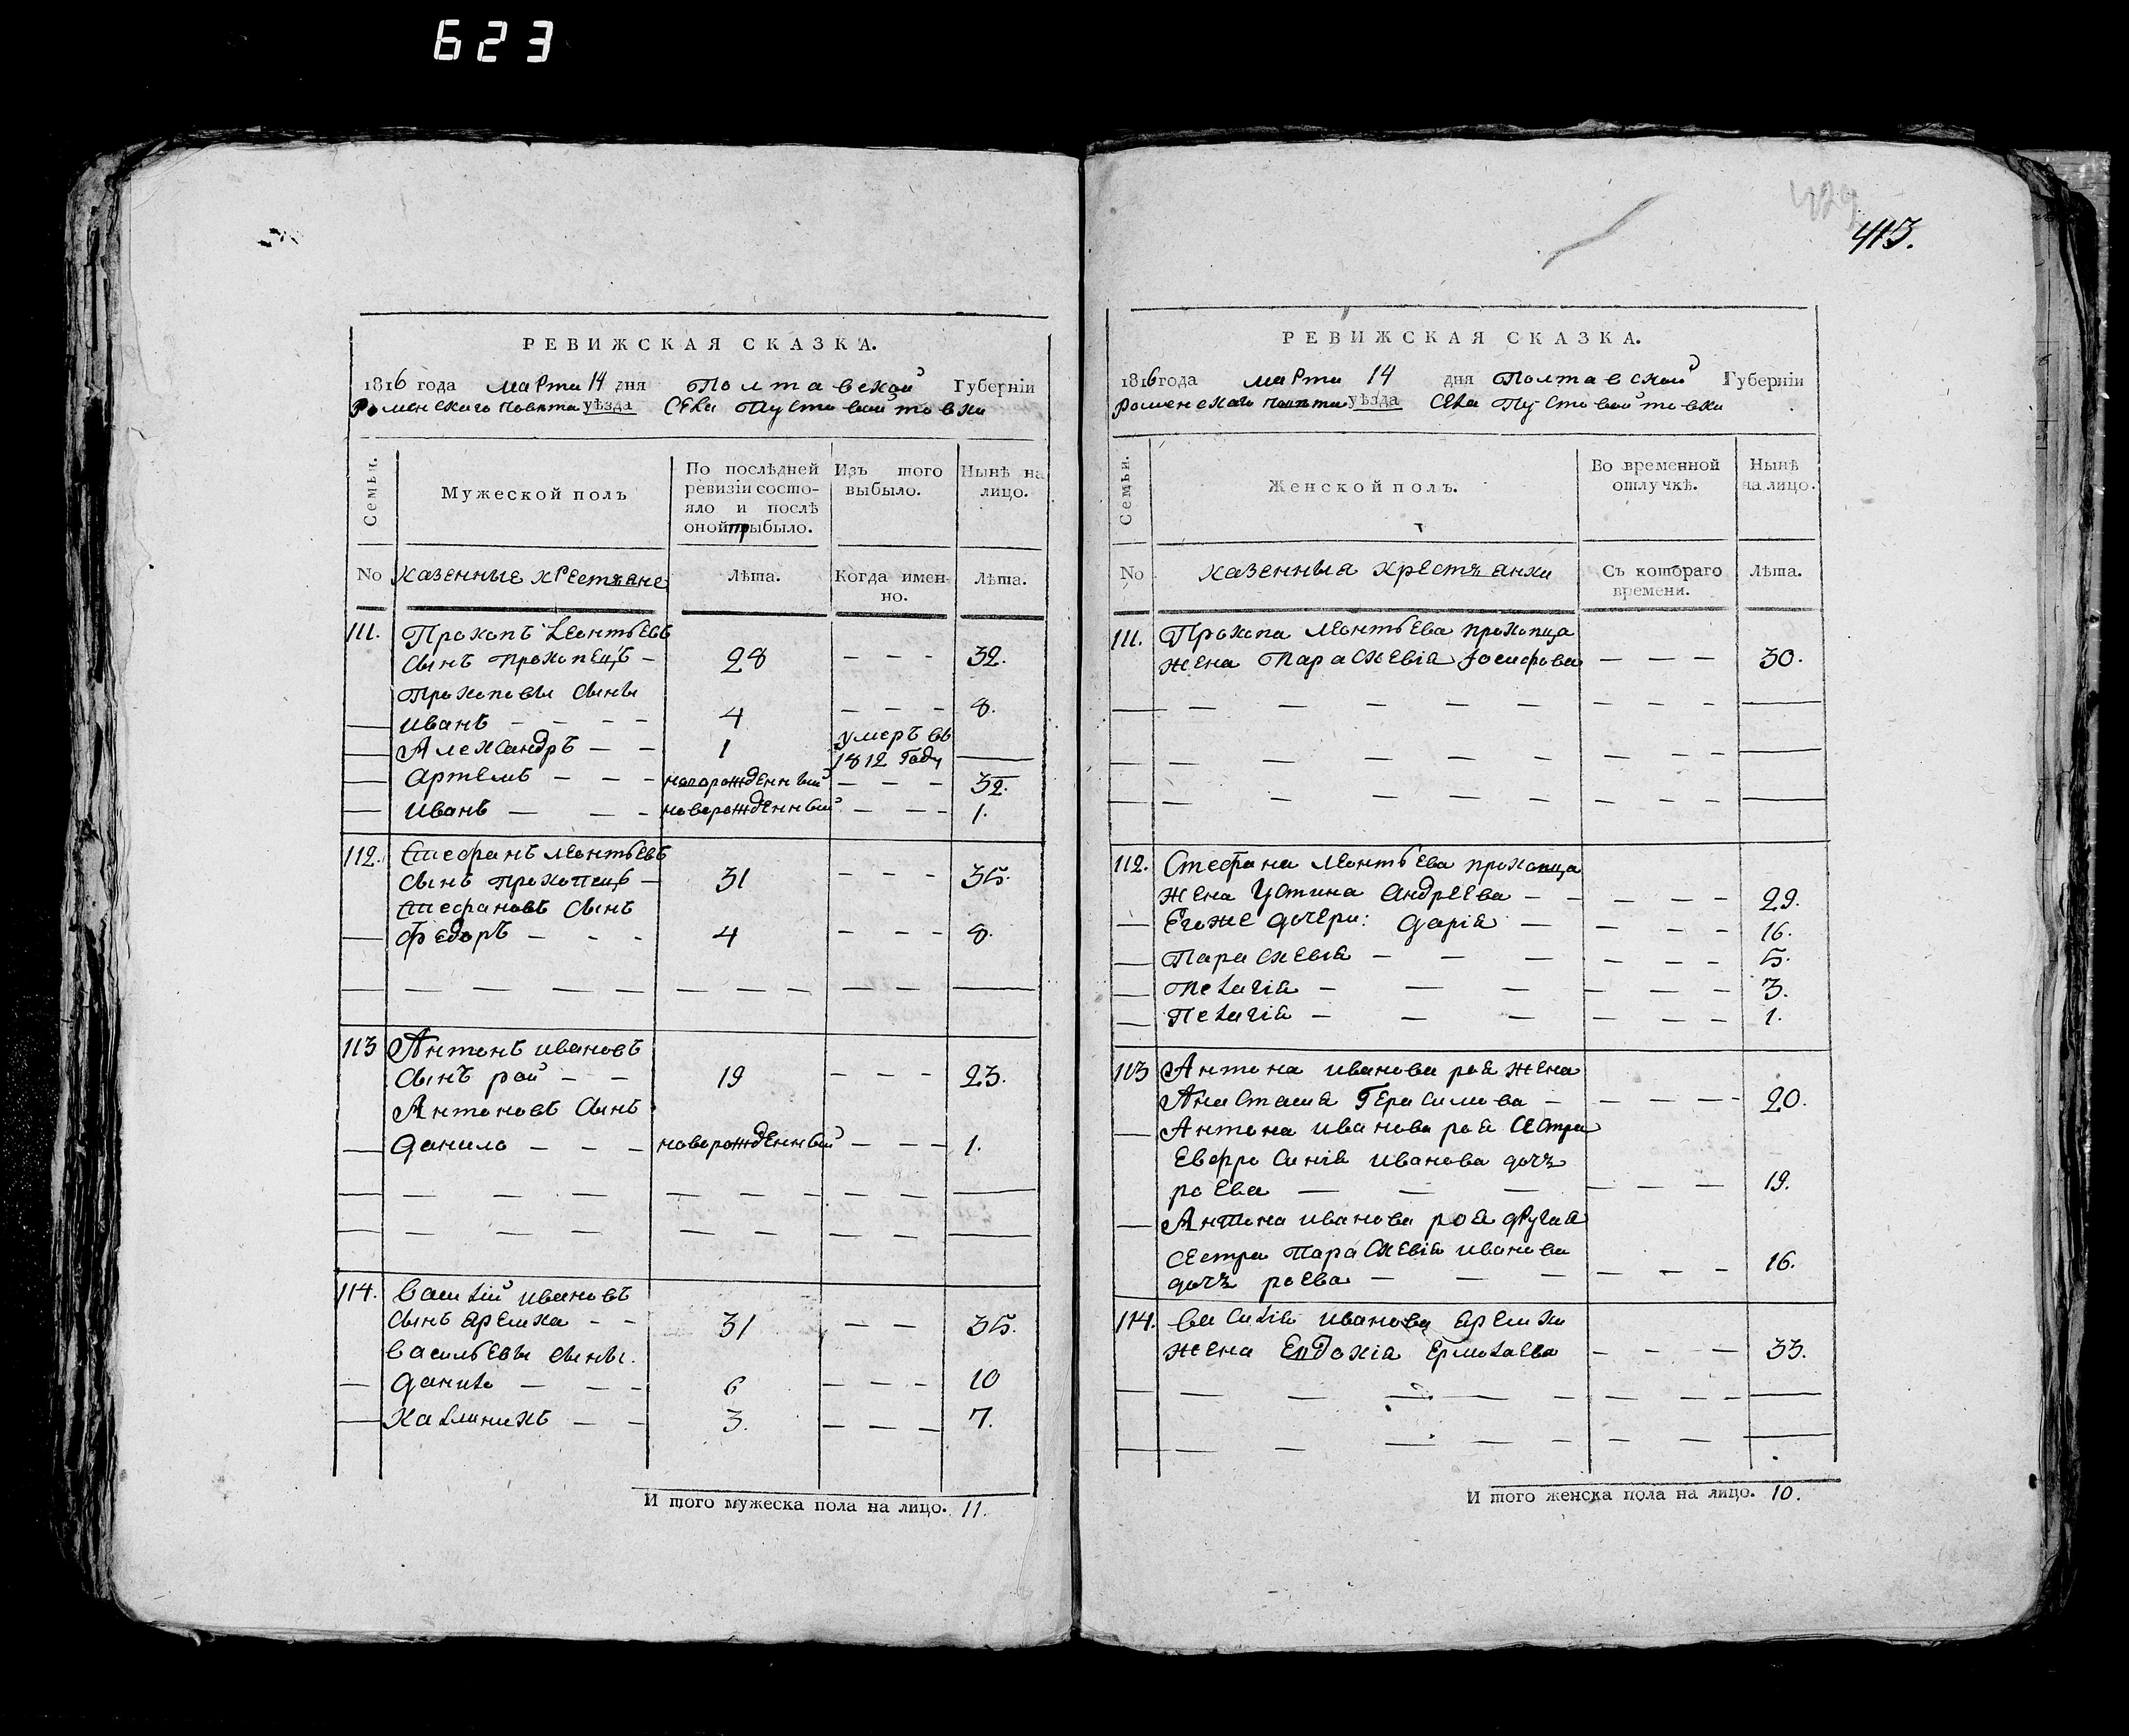 623
429
413.
РЕВИЖСКАЯ СКАЗКА.
1816 года марта 14 дня Полтавской Губерніи
Роменскаго повѣта уѣзда села Пустовойтовки
Семьи.
Мужеской полъ
По послѣдней ревизіи состо-
яло и послѣ
оной прибыло.
Изъ того
выбыло.
Нынѣ на
лицо.
No казенные крестьяне
лѣта.
Когда имен-
но.
лѣта.
111. Прокопъ Леонтьевъ
сынъ прокопецъ — 28 — — — 32.
Прокоповы сыны
иванъ — — — — 4 — — — 8.
Александръ — — 1 умеръ въ
1812 году
артемъ — — — новорожденный — — — 3 1/2.
иванъ — — — новорожденный — — — 1.
112. Стефанъ леонтьевъ
сынъ прокопецъ — 31 — — — 35.
Стефановъ сынъ
Федоръ — — — 4 — — — 8.
113 Антонъ ивановъ
сынъ рой — — 19 — — — 23.
Антоновъ сынъ
данило — — — новорожденный — — — 1.
114. василій ивановъ
сынъ ярешка — — 31 — — 35.
васильевы сыны.
данило — — — 6 — — — 10
калиникъ — — 3. — — — 7.
И того мужеска пола на лицо. 11.
РЕВИЖСКАЯ СКАЗКА.
1816 года марта 14 дня Полтавской Губерніи
роменскаго повѣта уѣзда села Пустовойтовки
Семьи.
Женской полъ.
Во временной
отлучкѣ.
Нынѣ
на лицо.
No казенныя крестьянки
Съ котораго
времени.
лѣта.
111. Прокопа леонтьева прокопца
жена Параскевія Іосифова — — — 30.
112. Стефана леонтьева прокопца
жена Устина андреева — — — — — 29.
Егоже дочери: дарія — — — — 16.
Параскевія — — — — — — 5.
Пелагія — — — — — — 3.
Пелагія — — — — — — 1.
113 Антона иванова роя жена
Анастасія Герасимова — — — — — 20.
Антона иванова роя сестра
Евфросинія иванова дочь
роева — — — — — — 19.
Антона иванова роя другая
сестра Параскевія иванова
дочь роева — — — — — — 16.
114. василія иванова ярешки
жена Евдокія Ермолаева — — — 33.
И того женска пола на лицо. 10.